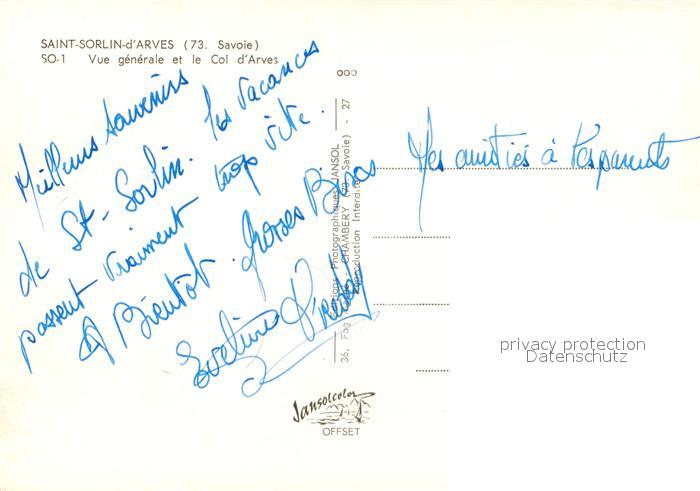 SAINT-SORLIN-d'ARVES (73. Savoie)
SO-1 Vue générale et le Col d'Arves
Meilleurs souvenirs
de St-Sorlin. les vacances
passent vraiment trop vite.
A Bientôt. Grosses Bises
Eveline
Mes amitiés à tes parents
ooo
Photographiques JANSOL
CHAMBERY (73. Savoie) - 27
Reproduction Interdite
36,
privacy protection
Datenschutz
Jansolcolor
OFFSET